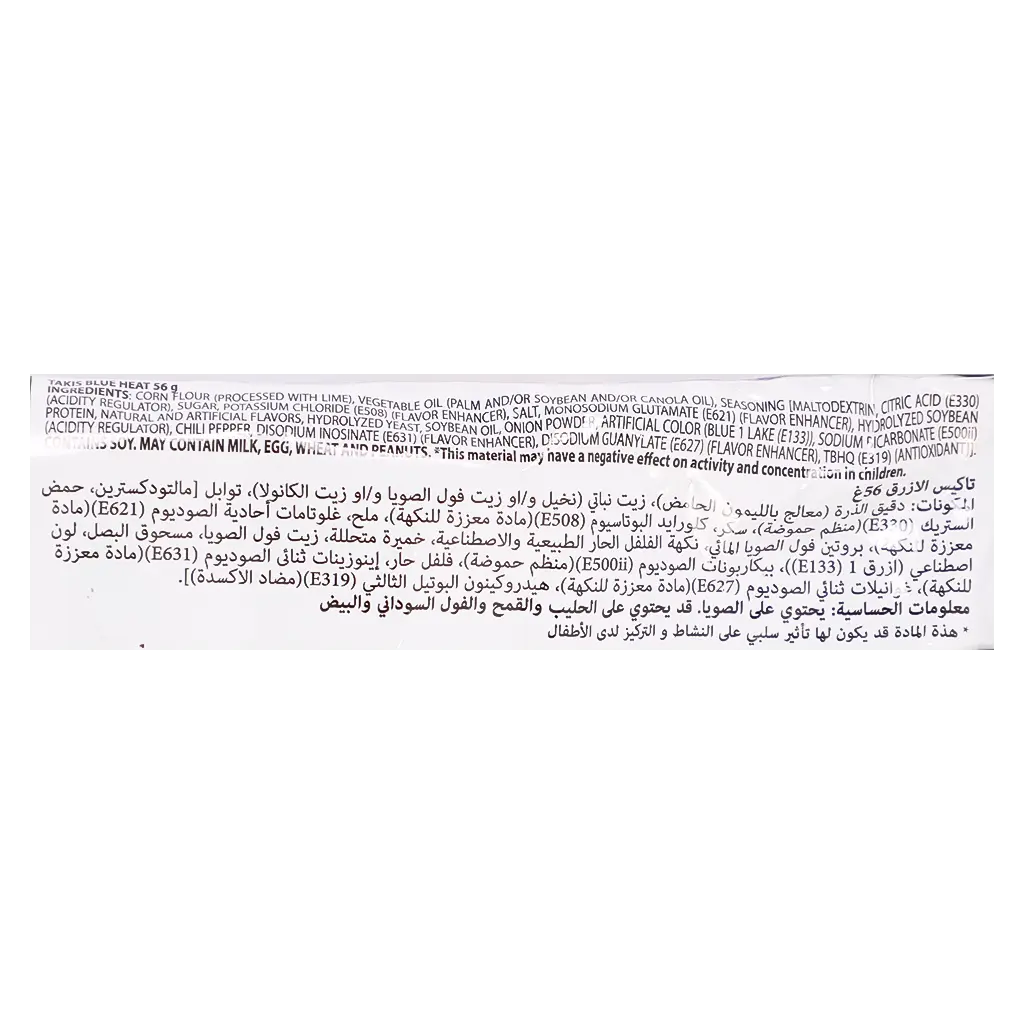 TAKIS BLUE HEAT 56 g
INGREDIENTS: CORN FLOUR (PROCESSED WITH LIME), VEGETABLE OIL (PALM AND/OR SOYBEAN AND/OR CANOLA OIL), SEASONING [MALTODEXTRIN, CITRIC ACID (E330)
(ACIDITY REGULATOR), SUGAR, POTASSIUM CHLORIDE (E508) (FLAVOR ENHANCER), SALT, MONOSODIUM GLUTAMATE (E621) (FLAVOR ENHANCER), HYDROLYZED SOYBEAN
PROTEIN, NATURAL AND ARTIFICIAL FLAVORS, HYDROLYZED YEAST, SOYBEAN OIL, ONION POWDER, ARTIFICIAL COLOR (BLUE 1 LAKE (E133)), SODIUM BICARBONATE (E500ii)
(ACIDITY REGULATOR), CHILI PEPPER, DISODIUM INOSINATE (E631) (FLAVOR ENHANCER), DISODIUM GUANYLATE (E627) (FLAVOR ENHANCER), TBHQ (E319) (ANTIOXIDANT)].
CONTAINS SOY. MAY CONTAIN MILK, EGG, WHEAT AND PEANUTS. *This material may have a negative effect on activity and concentration in children.
تاكيس الازرق 56غ
المكونات: دقيق الذرة (معالج بالليمون الحامض)، زيت نباتي (نخيل و/او زيت فول الصويا و/او زيت الكانولا)، توابل [مالتودكسترين، حمض
الستريك (E330)(منظم حموضة)، سكر، كلورايد البوتاسيوم (E508)(مادة معززة للنكهة)، ملح، غلوتامات أحادية الصوديوم (E621)(مادة
معززة للنكهة)، بروتين فول الصويا المائي، نكهة الفلفل الحار الطبيعية والاصطناعية، خميرة متحللة، زيت فول الصويا، مسحوق البصل، لون
اصطناعي (ازرق 1 (E133))، بيكاربونات الصوديوم (E500ii)(منظم حموضة)، فلفل حار، إينوزينات ثنائى الصوديوم (E631)(مادة معززة
للنكهة)، غوانيلات ثنائي الصوديوم (E627)(مادة معززة للنكهة)، هيدروكينون البوتيل الثالثي (E319)(مضاد الاكسدة)].
معلومات الحساسية: يحتوي على الصويا. قد يحتوي على الحليب والقمح والفول السوداني والبيض
* هذة المادة قد يكون لها تأثير سلبي على النشاط و التركيز لدى الأطفال